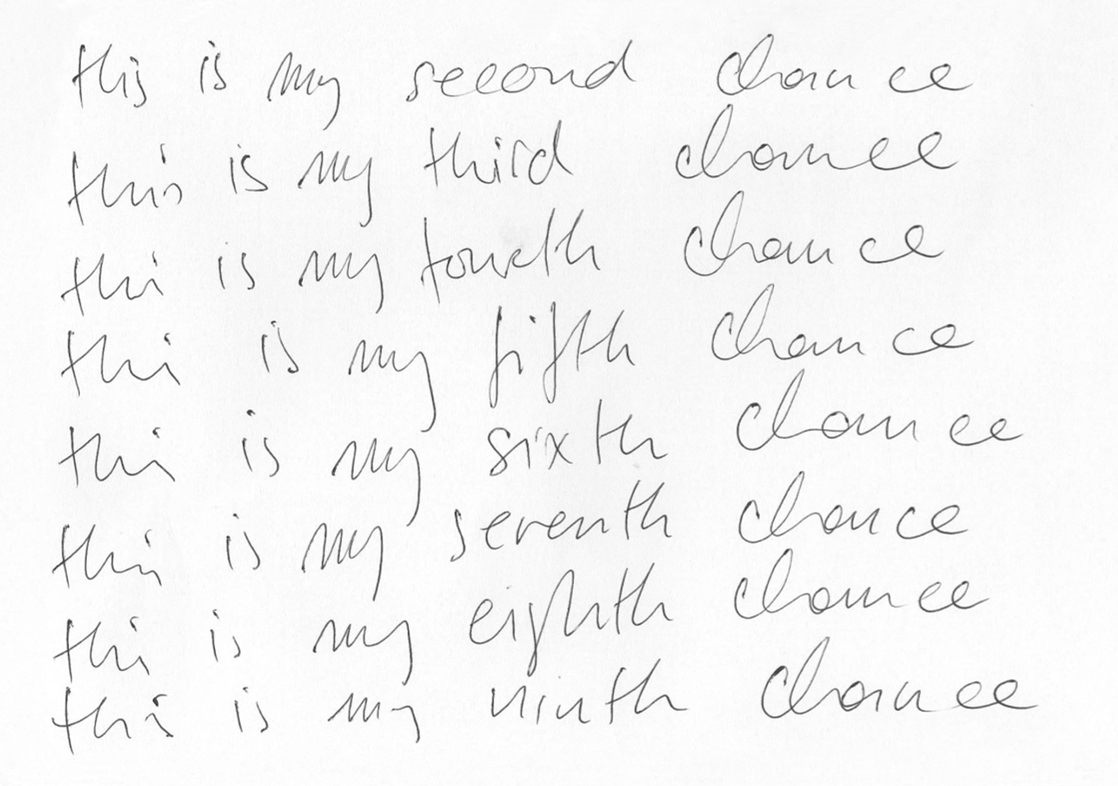 this is my second chance
this is my third chance
this is my fourth chance
this is my fifth chance
this is my sixth chance
this is my seventh chance
this is my eighth chance
this is my ninth chance